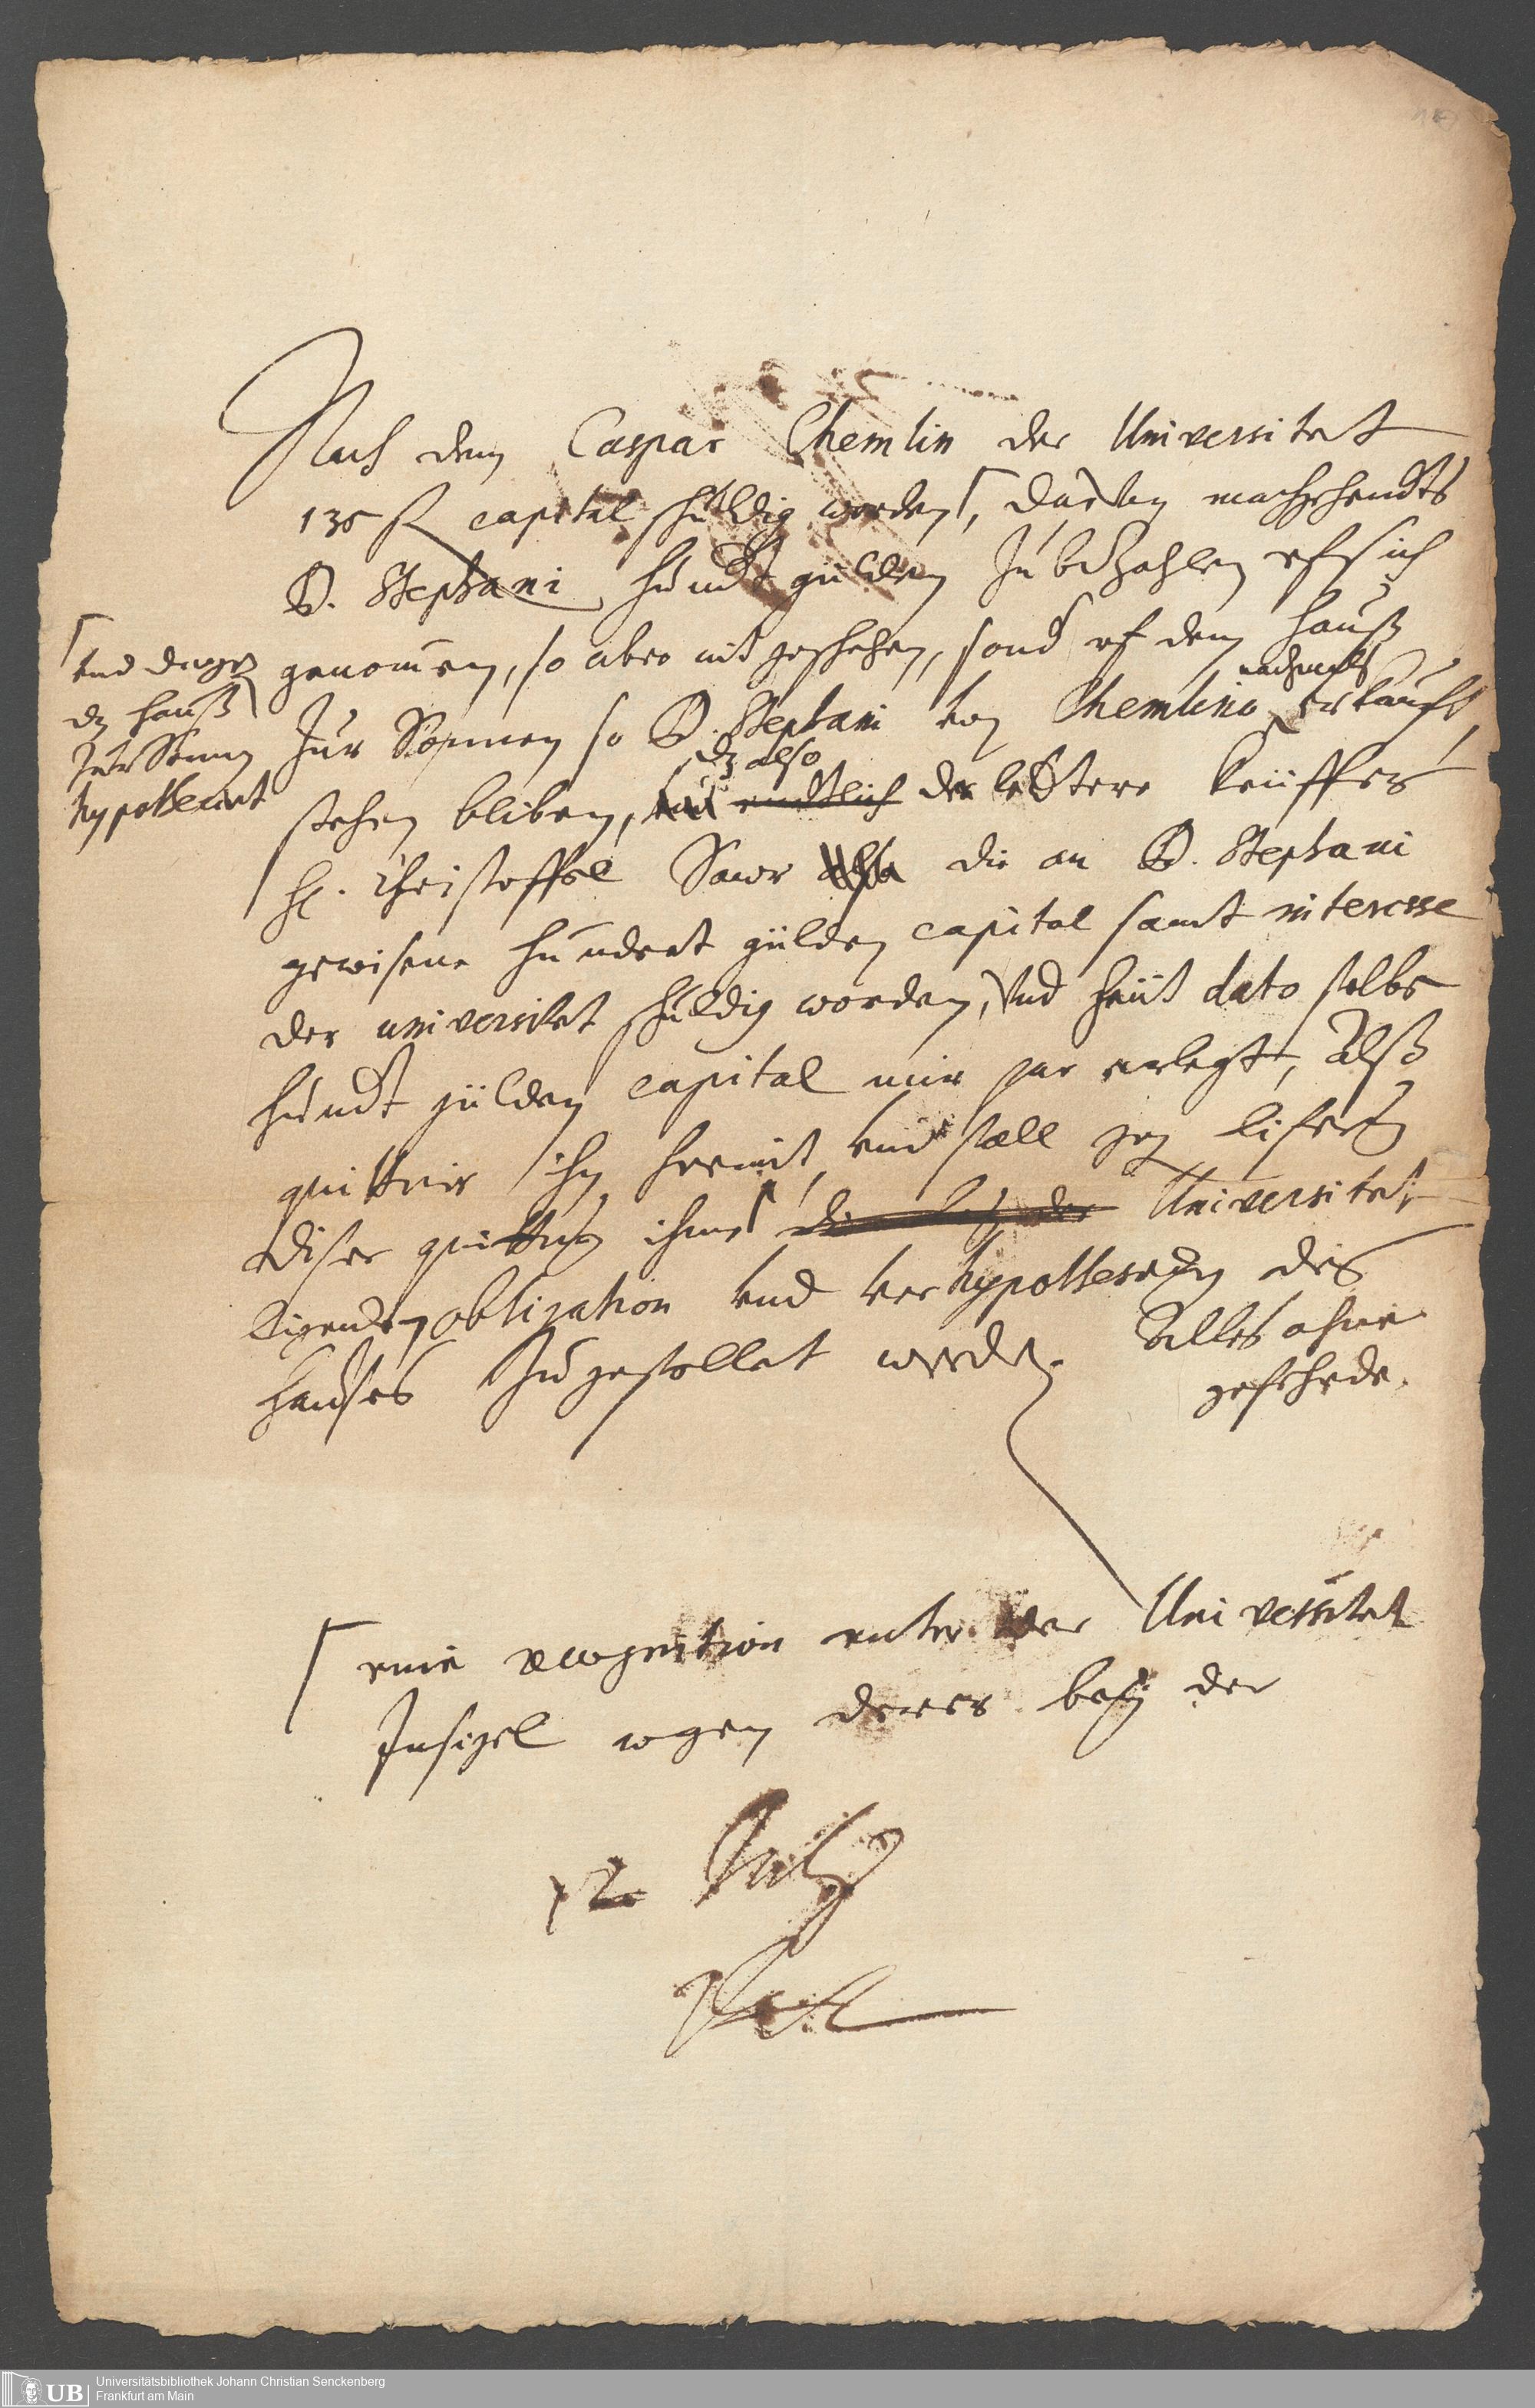 Nach dem Caspar Chemlin der Universitet
135 fl capital schuldig worden, davon nachgehendts
D. Stephani hundt gulden zu bezahlen uf sich
genommen, so aber nit geschehen, sond uf dem hauß
nachmals
zur Sonnen so D. Stephani von Chemlino erkaufft,
dz also
stehen bliben, endtlich der letztere keüffer
H. Christoffel Saur die an D. Stephani
gewisene hundert gülden capital samt interesse
der universitet schuldig worden, vnd heüt dato selbe
hundt gülden capital mir par erlegt, Alß
quittir ihn hermit, vnd soll gegen liferung
diser quittung ihme Universitet
ligenden obligation vnd verhypothecirung des
hauses zugestellet werden. Alles ohne
geferde.
vnd dagegen
dz hauß
zur Sonnen
hypothecirt
eine recognition unter der Universitet
Insigel wegen derer bey der
Universitätsbibliothek Johann Christian Senckenberg
Frankfurt am Main
UB